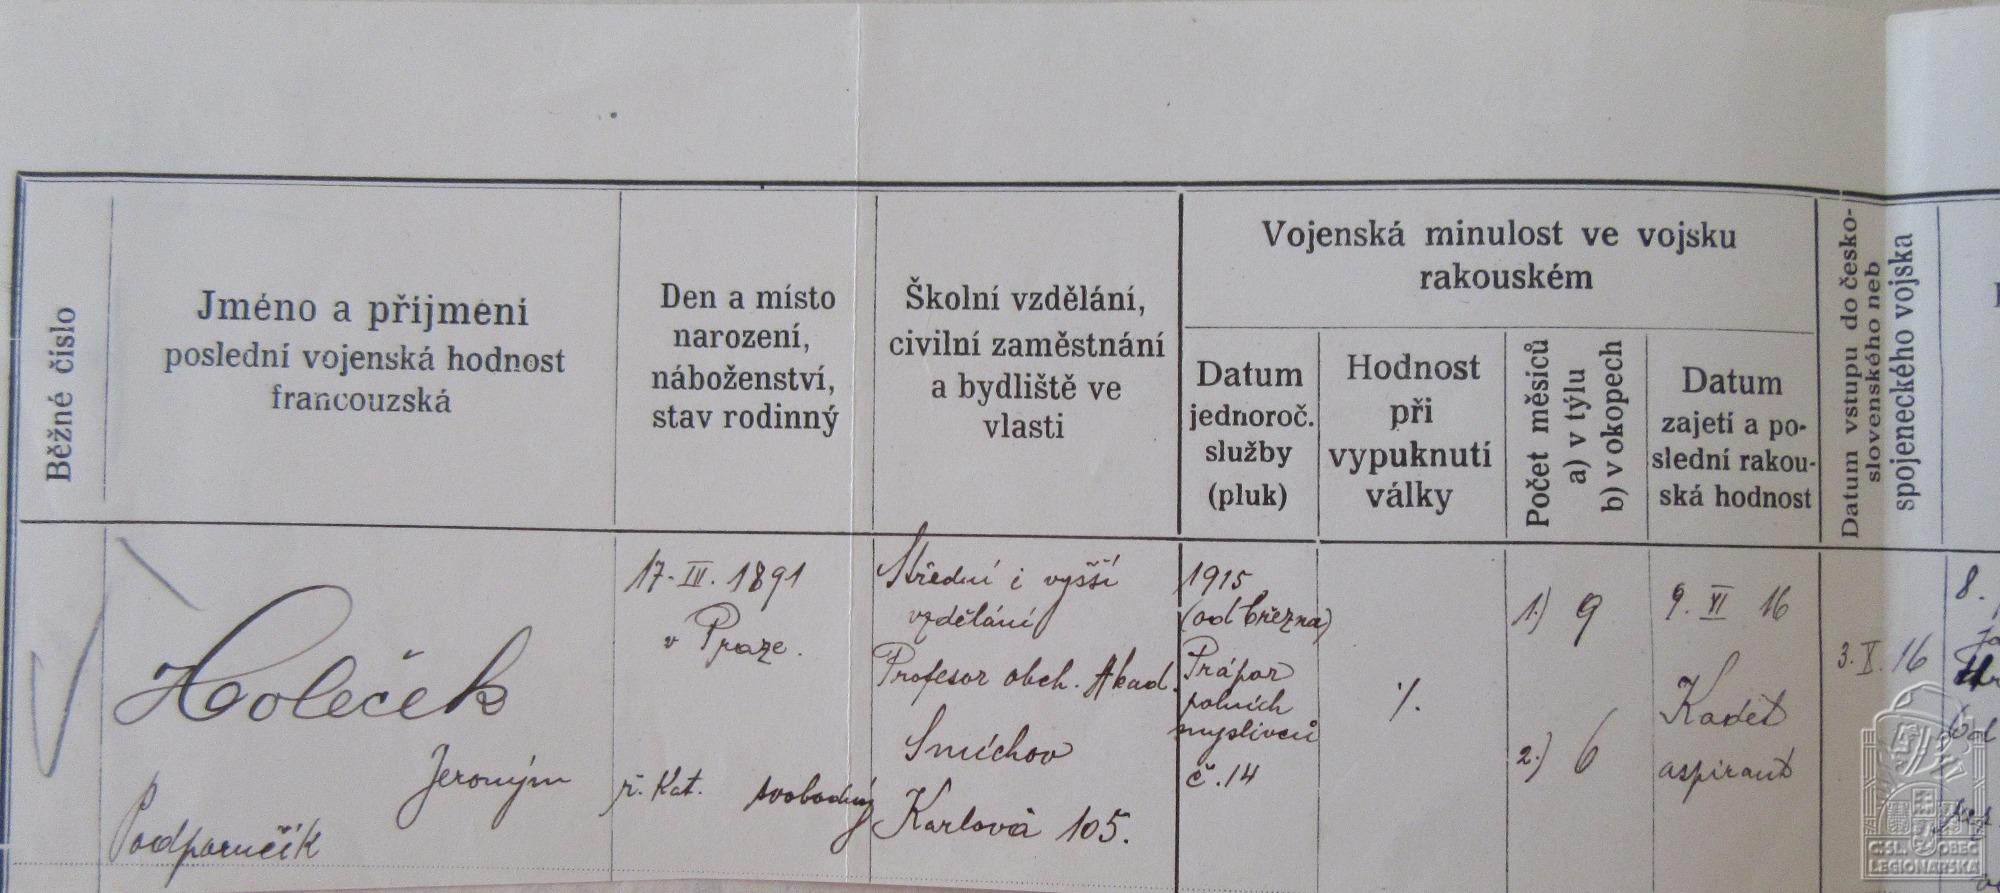 Běžné číslo
Jméno a příjmení
poslední vojenská hodnost
francouzská
Den a místo
narození,
náboženství,
stav rodinný
Školní vzdělání,
civilní zaměstnání
a bydliště ve
vlasti
Vojenská minulost ve vojsku
rakouském
Datum
jednoroč.
služby
(pluk)
Hodnost
při
vypuknutí
války
Počet měsíců
a) v týlu
b) v okopech
Datum
zajetí a po-
slední rakou-
ská hodnost
Datum vstupu do česko-
slovenského neb
spojeneckého vojska
Holeček
Jeroným
Podporučík
17. III. 1891
v Praze.
ř. kat. svobodný
Střední i vyšší
vzdělání
Profesor obch. Akad.
Smíchov
Karlova 105.
1915
(od března)
Prápor
polních
myslivců
č. 14
1.) 9
2.) 6
9. VI 16
Kadet
aspirant
3. X. 16
8.
ČSL. OBEC
LEGIONÁŘSKÁ